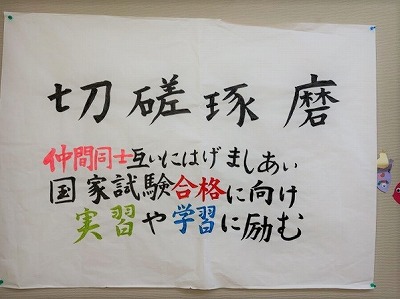 切磋琢磨
仲間同士互いにはげましあい
国家試験合格に向け
実習や学習に励む